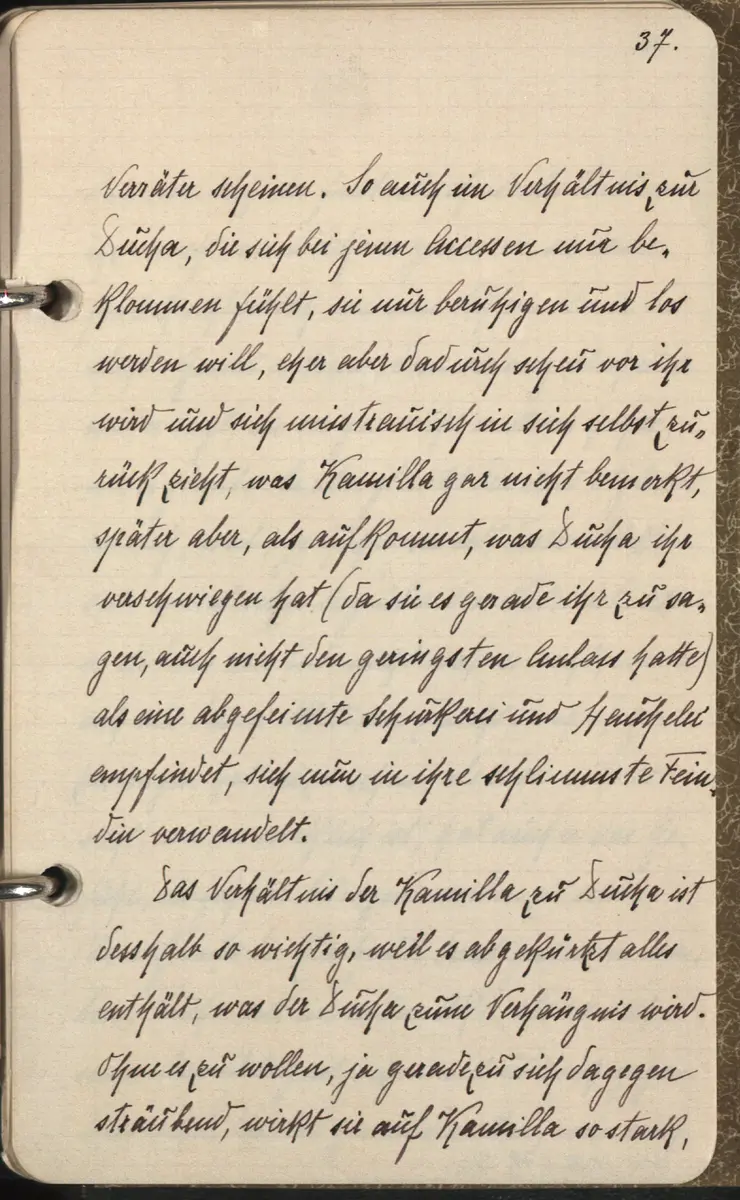 37.
Verräter scheinen. So auch im Verhältnis zur
Ducha, die sich bei jenen Accessen nur be-
klommen fühlt, sie nur beruhigen und los
werden will, eher aber dadurch scheu vor ihr
wird und sich misstrauisch in sich selbst zu-
rück zieht, was Kamilla gar nicht bemerkt,
später aber, als aufkommt, was Ducha ihr
verschwiegen hat (da sie es gerade ihr zu sa-
gen, auch nicht den geringsten Anlass hatte)
als eine abgefeimte Schurkerei und Heuchelei
empfindet, sich nun in ihre schlimmste Fein-
din verwandelt.
Das Verhältnis der Kamilla zu Ducha ist
desshalb so wichtig, weil es abgekürtzt alles
enthält, was der Ducha zum Verhängnis wird.
Ohne es zu wollen, ja geradezu sich dagegen
sträubend, wirkt sie auf Kamilla so stark,